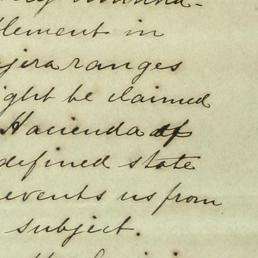 lement in
jira ranges
ight be claimed
Hacienda of
defined state
events us from
subject.